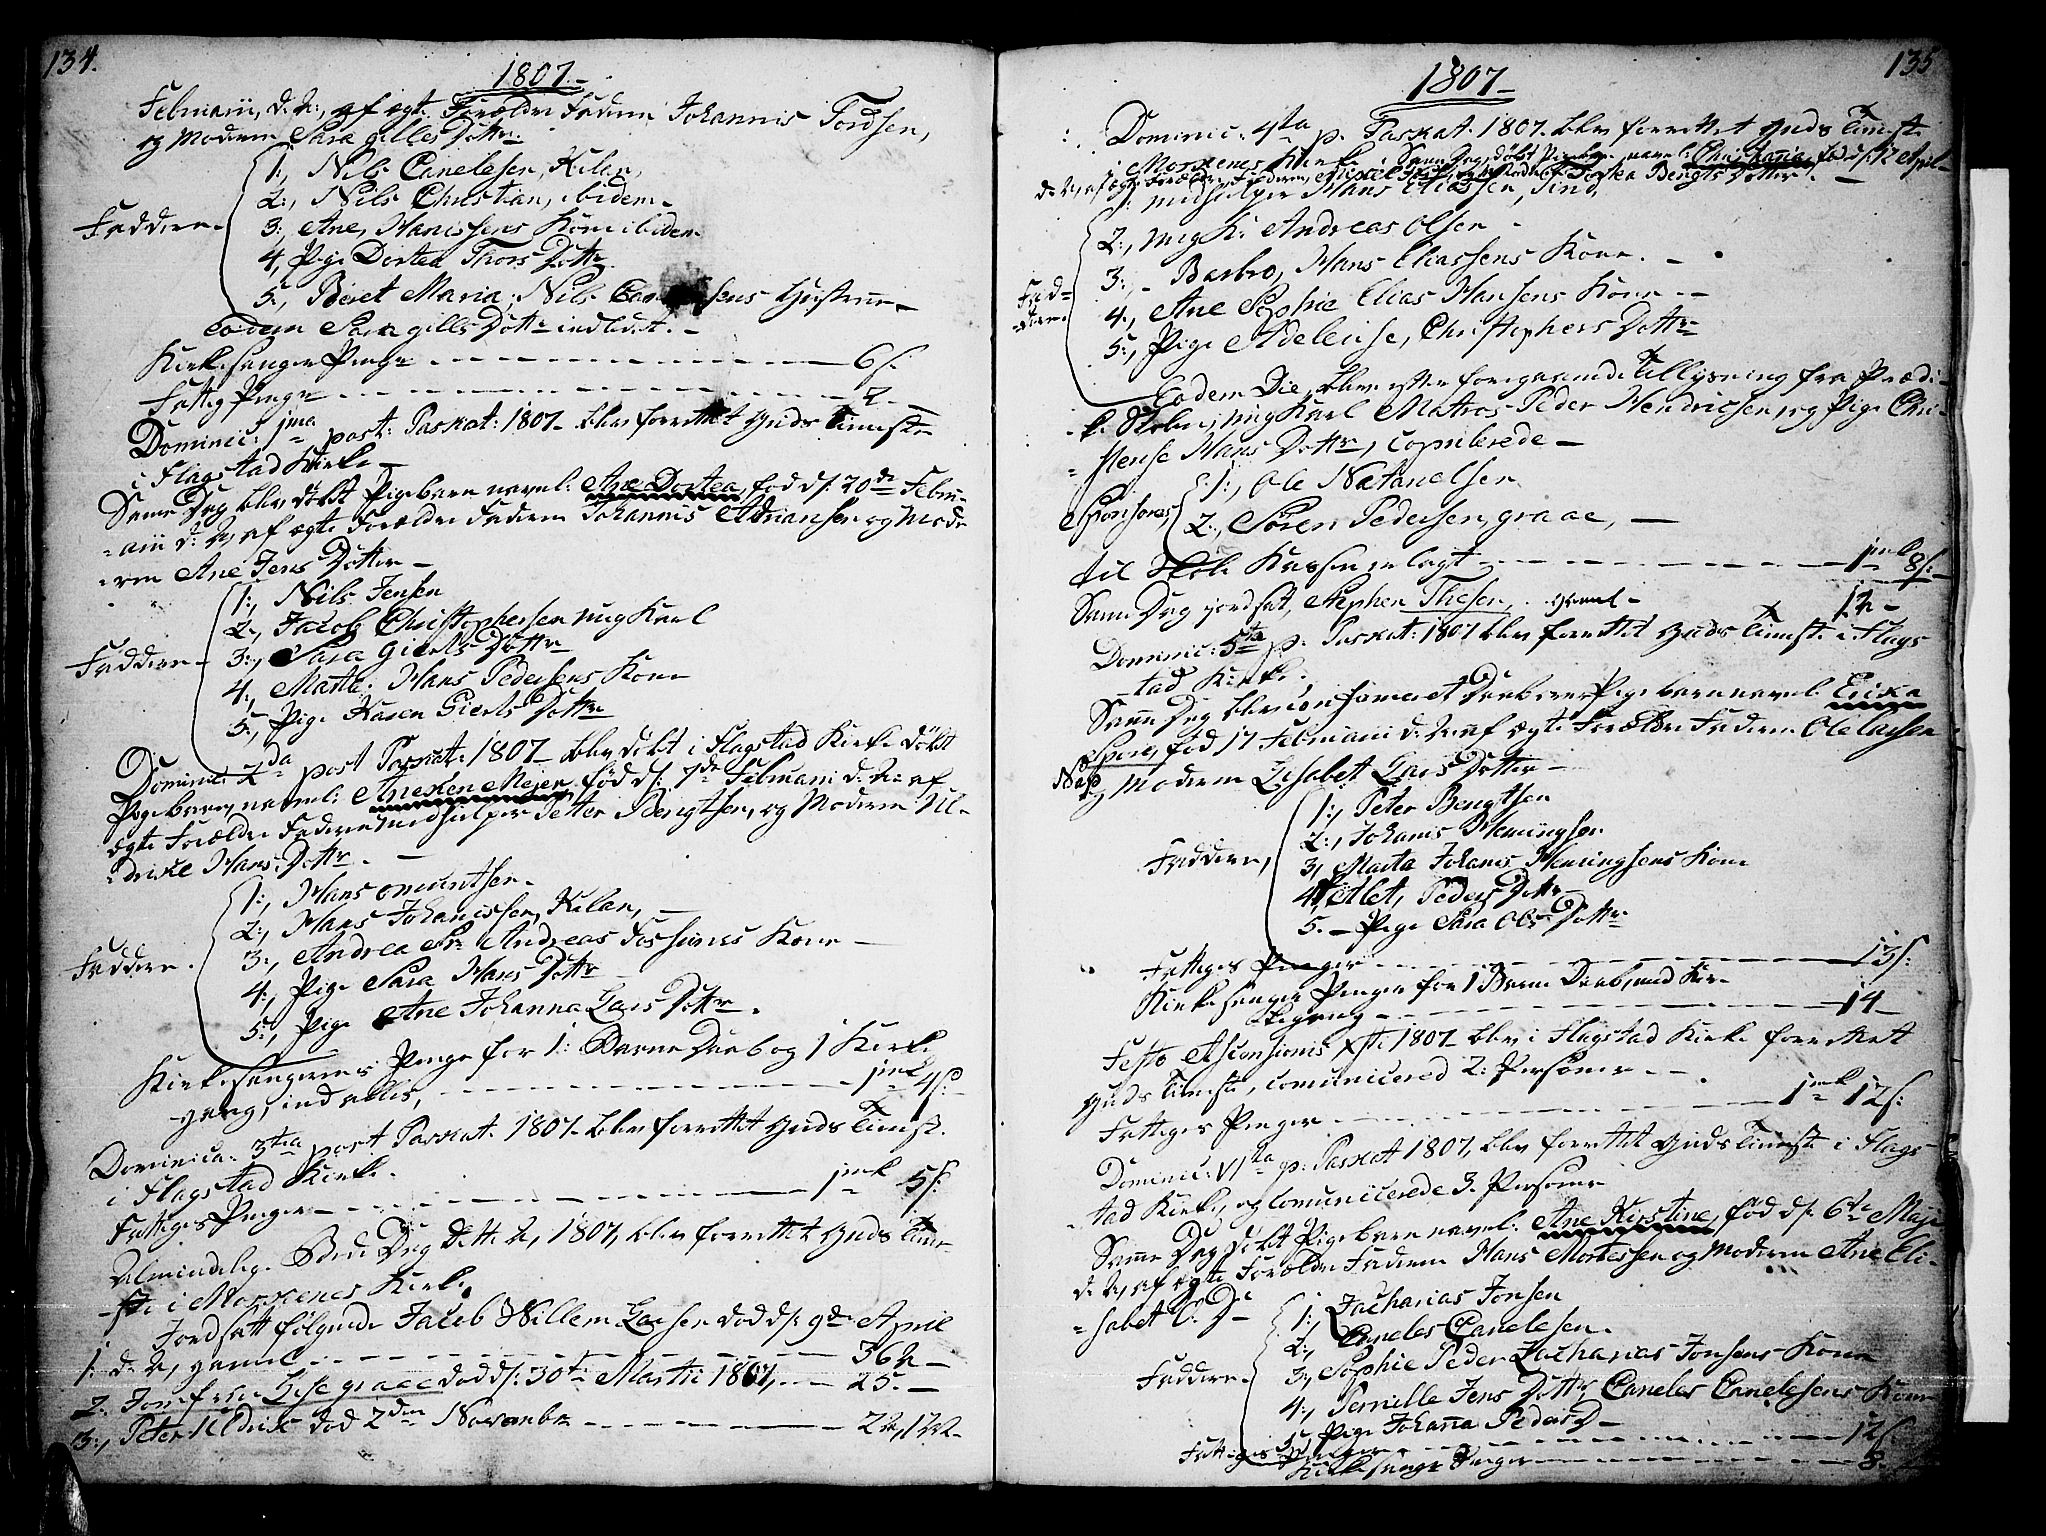 134.
1807.
Februarii, d: A:, af ægte Forældre Faderen Johannis Tordsen,
og Moderen Sara gilles Dotter
1:, Nils Canelesen, Kilan,
2:, Nils Christian, ibidem
Faddere
3:, Ane, Hanissens Kone ibidem
4, Pige Dortea Thors Dotter
5:, Beret Maria, Nils Hustrue
eodem Sara gills Dotter indledet.
Kirkesanger Penge 6 s:
Fattig Penge 2
Dominic: 1ma post: Paskat: 1807 blev forrettet Guds Tieneste
i Flagstad Kirke
Same Dag blev døbt Pigebarn navnl: Ane Dortea, fød d: 20de Febru-
arii d: A, af ægte Forældre Faderen Johannis Adriansen og Mode
ren Ane Jens Dotter
1:, Nils Jensen
2:, Jacob Christophersen ung Karl
Faddere
3:, Sara Gierts Dotter
4:, Marta: Hans Pedersens Kone
5:, Pige Karen Gierts Dotter
Dominic: 2da post Paskat: 1807 blev døbt i Flagstad Kirke døbt
Pigebarn, navnl: Anexen Mejer, fød d: 7de Februarii d: A: af
ægte Forældre Faderen Medhielper Petter Bengtsen, og Moderen Ul-
drike Hans Dotter.
1:, Hans omuntsen
2:, Hans Johanissen, Kilan,
3:, Andrea Andreas Kone
Faddere.
4:, Pige Sara Hans Dotter
5:, Pige Ane Johanna Lars Dotter.
Kirkesangerens Penge for 1: Barne Daab og 1 Kirke
gang, ind alles, 1 mk 4 s:
Dominica: 3tia post Paskat. 1807 blev forrettet Guds Tienest.
i Flagstad Kirke.
Fattiges Penge 1 mk 5 s:
Almindelig Bede Dag dette A, 1807, blev forrettet Guds Tiene-
ste i Moskenes Kirke,
Jordsatt følgende Jacob Willem Larsen død d: 9de April
1: d: A, gamel 36 A
2. Jomfrue Lise graae død d: 30te Martii 1807, 25.
3:, Peter Uldrik død 2den Novembr
135
1807
Dominic: 4ta p. Paskat. 1807. blev forrettet Guds Tieneste
i Moskenes Kirke. Same Dag, døbt Pigebarn navnl: Christiania, fød d: 12 April
d: A, af ægte Forældre, Faderen og Moderen Dortea Bengts Dotter.
1: Medhielper Hans Eliassen, Sind,
2:, ung K: Andreas Olsen
3:, Barbro, Hans Eliassens Kone.
Fad-
dere.
4:, Ane Sophie Elias Hansens Kone
5:, Pige Adeleuse, Christophers Dotter
Eodem Die, blev efter foregaaende Tillysning fra Prædi-
ke Stolen, ung Karl Matros Peder Hendricsen, og Pige Chri-
stense Hans Dotter, copulerede
1:, Ole Natanelsen
Sponsores
2:, Sören Pedersen, graae,
til Skole Kassen indlagt 1 mk 8 s:
Same Dag jordsat, Stephen Thesen, gamel 12
Dominic: 5ta p. Paskat: 1807 blev forrettet Guds Tieneste i Flags
tad Kirke.
Same Dag blev confirmeret Daaben over Pigebarn navnl: Erika
fød 17 Februarii d: A af ægte Forældre Faderen Ole Larsen
Næs og Moderen Lisabet Lars Dotter
1:, Peter Bengtsen
2:, Johanis Heningsen
Faddere,
3, Marta Johanis Heningsens Kone
4, Alet, Peders Dotter
5. Pige Sara Ols Dotter
Fattiges Penger 13 s:
Kirkesanger Penger for 1 Barne Daab, med Kir-
kegang 14
Festo Ascensionis Xsti 1807 blev i Flagstad Kirke forrettet
Guds Tieneste, comunicered 2: Personer
Fattiges Penger 1 mk 12 s:
Dominic: VIta p: Paskat 1807, blev forrettet Guds Tieneste i Flags
tad Kirke, og Comunicerede 3. Personer
Same Dag døbt Pigebarn navnl: Ane Kirstine, fød d: 6te Maji
d: A, af ægte Forældre Faderen Hans Mortesen og Moderen Ane Eli-
sabet O: D:
1:, Zacharias Jonsen
2:, Caneles Canelesen.
Faddere.
3:, Sophie Peder Zacharias Jonsens Kone
4:, Pernille Jens Dotter, Caneles Canelesens Kone
5:, Pige Johanna Peders D
Fattiges Penger 12 s
Kirkesanger Penger 8